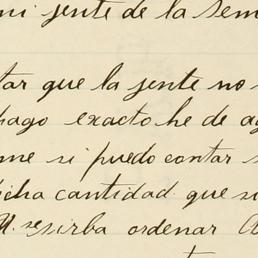 mi jente de la sem
tar que la jente no
pago exacto he de ag
me si puedo contar s
icha cantidad que s
M. se sirba ordenar